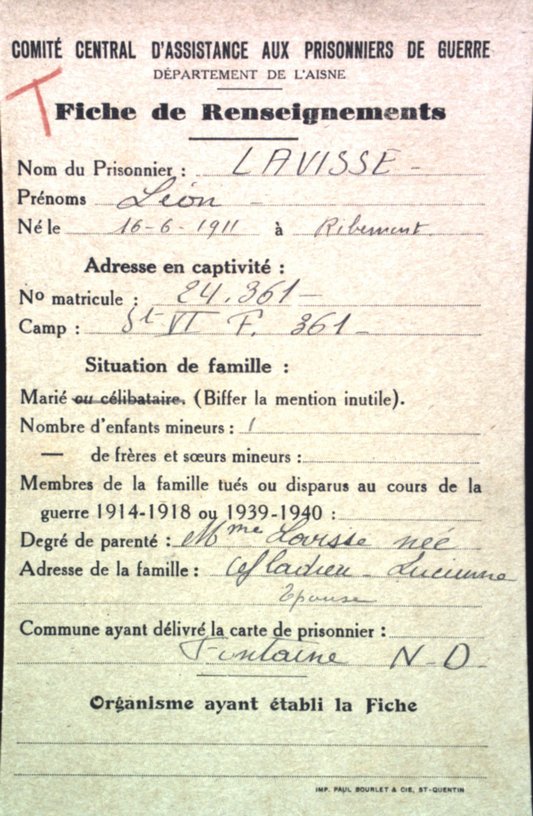 COMITÉ CENTRAL D'ASSISTANCE AUX PRISONNIERS DE GUERRE
DÉPARTEMENT DE L'AISNE
T
Fiche de Renseignements
Nom du Prisonnier : LAVISSE -
Prénoms Léon -
Né le 16-6-1911 à Ribemont.
Adresse en captivité :
No matricule : 24.361 -
Camp : St VI F. 361 -
Situation de famille :
Marié ou célibataire. (Biffer la mention inutile).
Nombre d'enfants mineurs : 1
— de frères et sœurs mineurs :
Membres de la famille tués ou disparus au cours de la
guerre 1914-1918 ou 1939-1940 :
Degré de parenté : Mme Lavisse née
Adresse de la famille : Lucienne
Epouse
Commune ayant délivré la carte de prisonnier :
Fontaine N-D-
Organisme ayant établi la Fiche
IMP. PAUL BOURLET & CIE, ST-QUENTIN